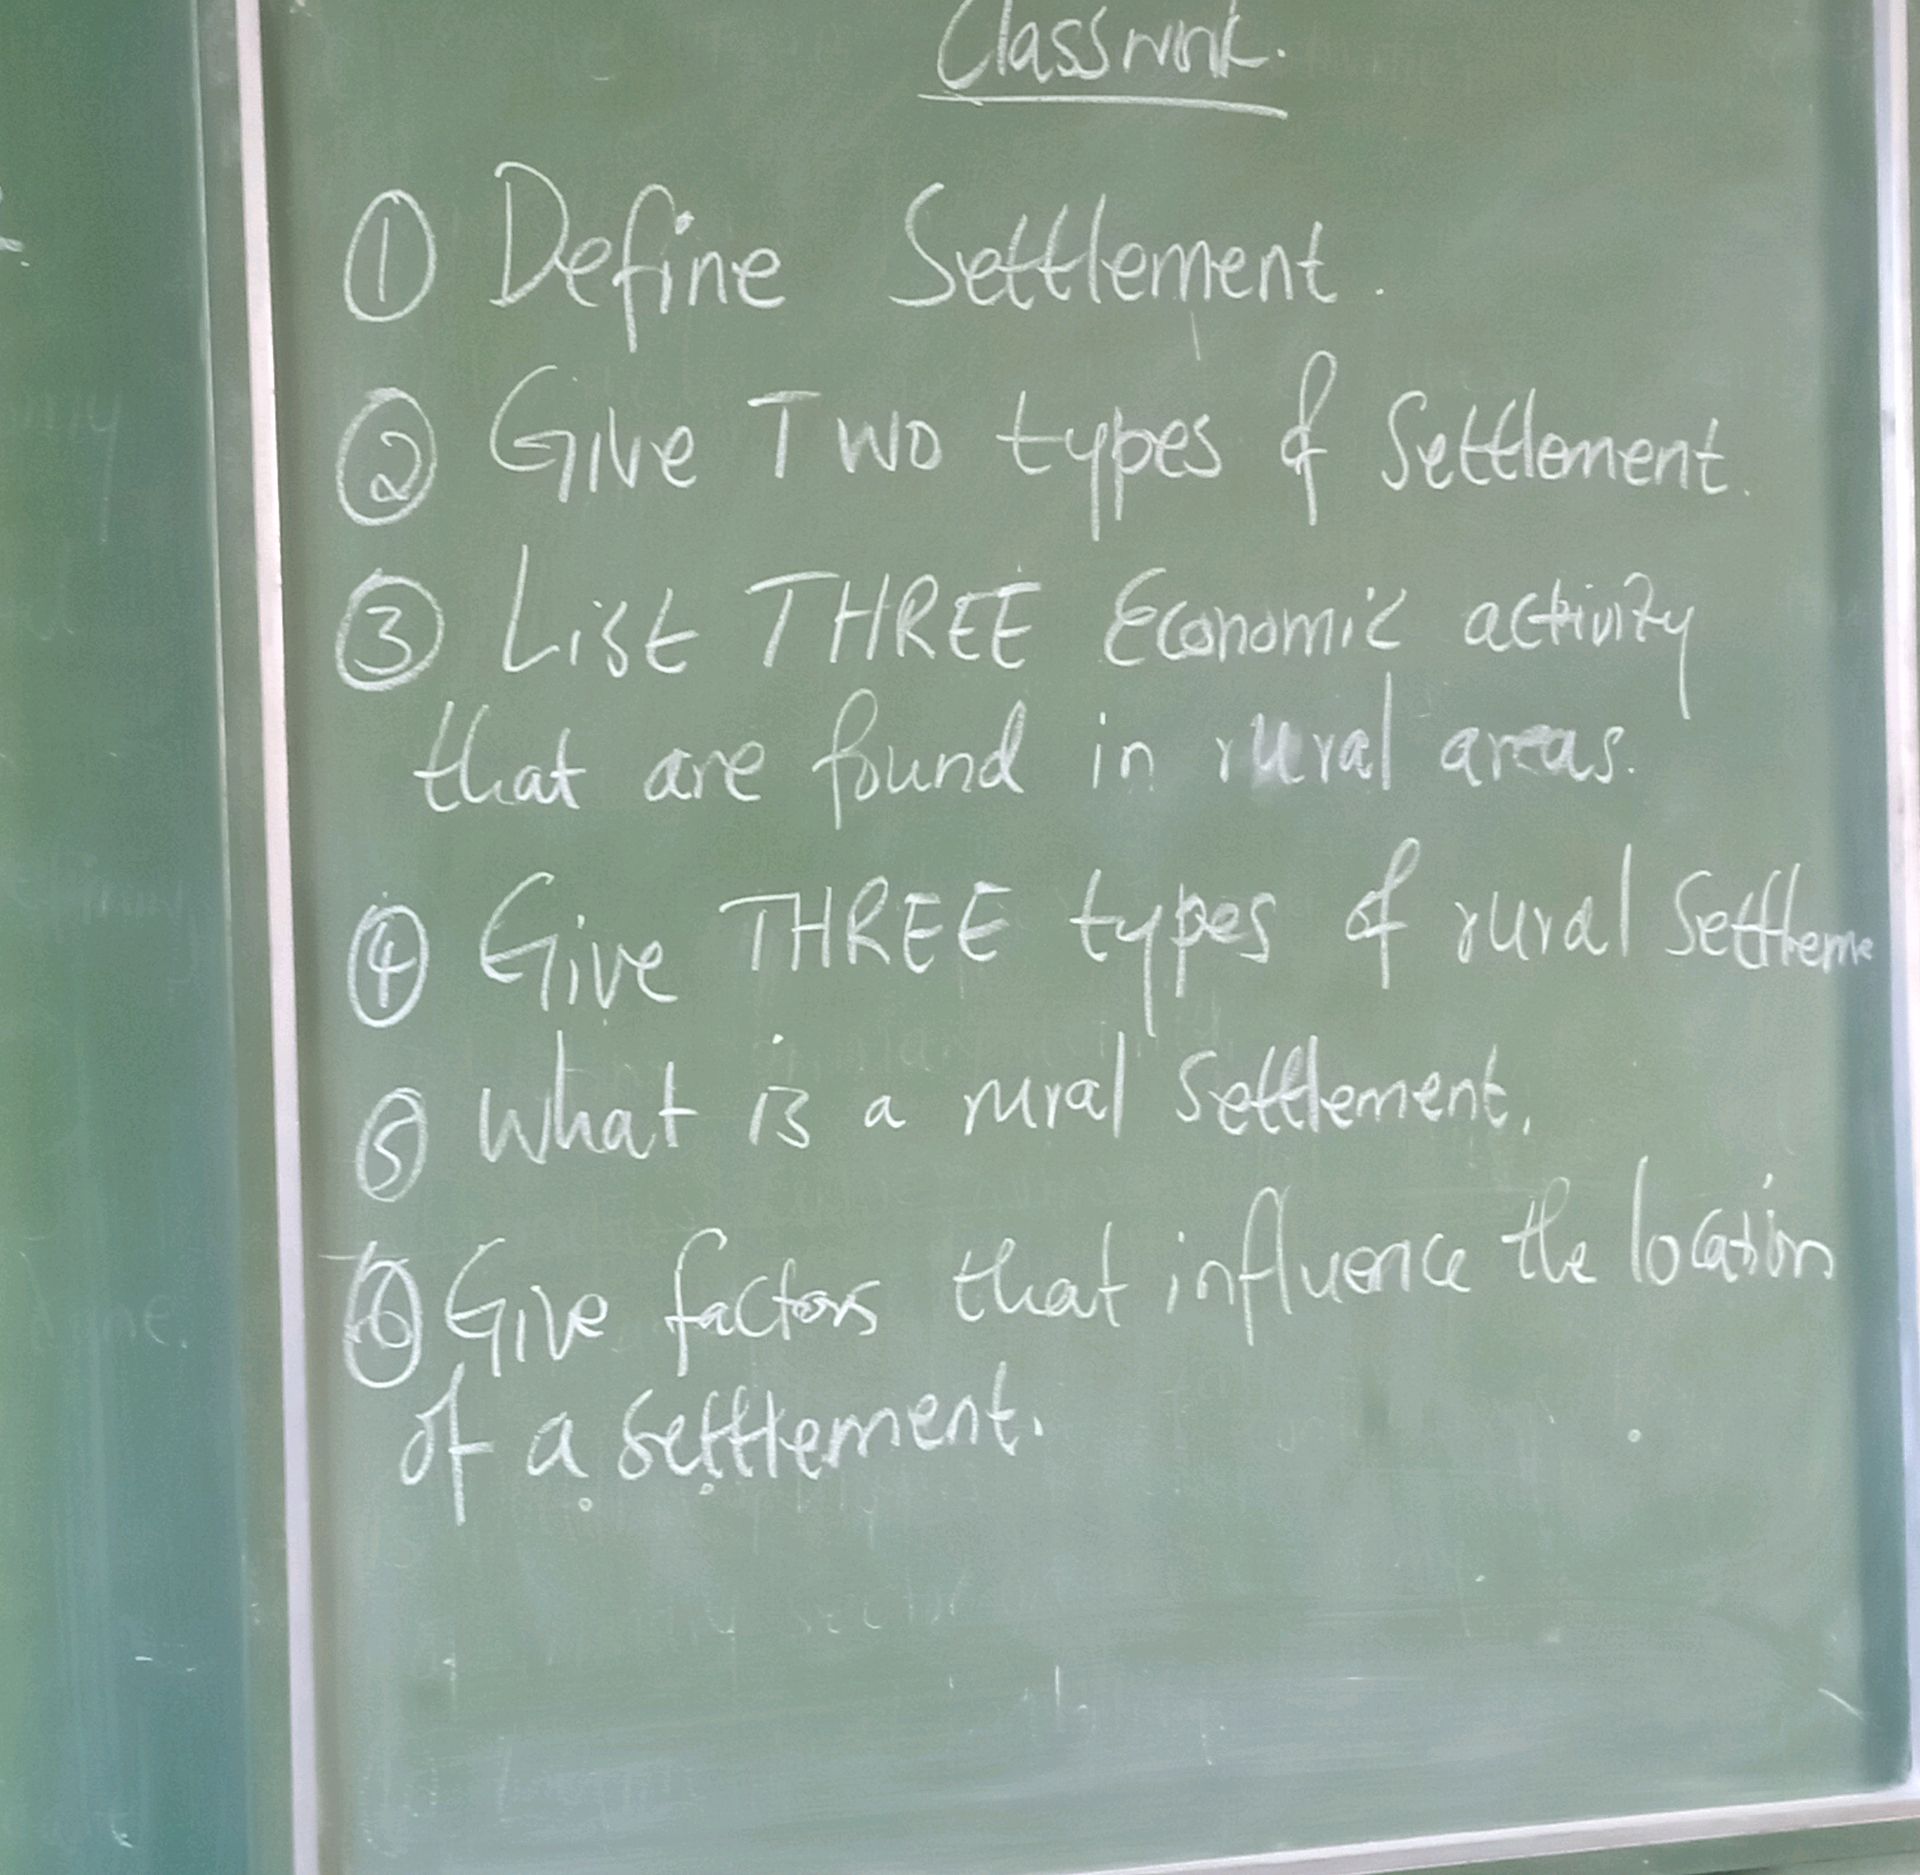 Classwork.
① Define Settlement.
② Give TWO types of Settlement.
③ List THREE Economic activity
that are found in rural areas.
④ Give THREE types of rural Settleme
⑤ What is a rural Settlement.
⑥ Give factors that influence the location
of a settlement.